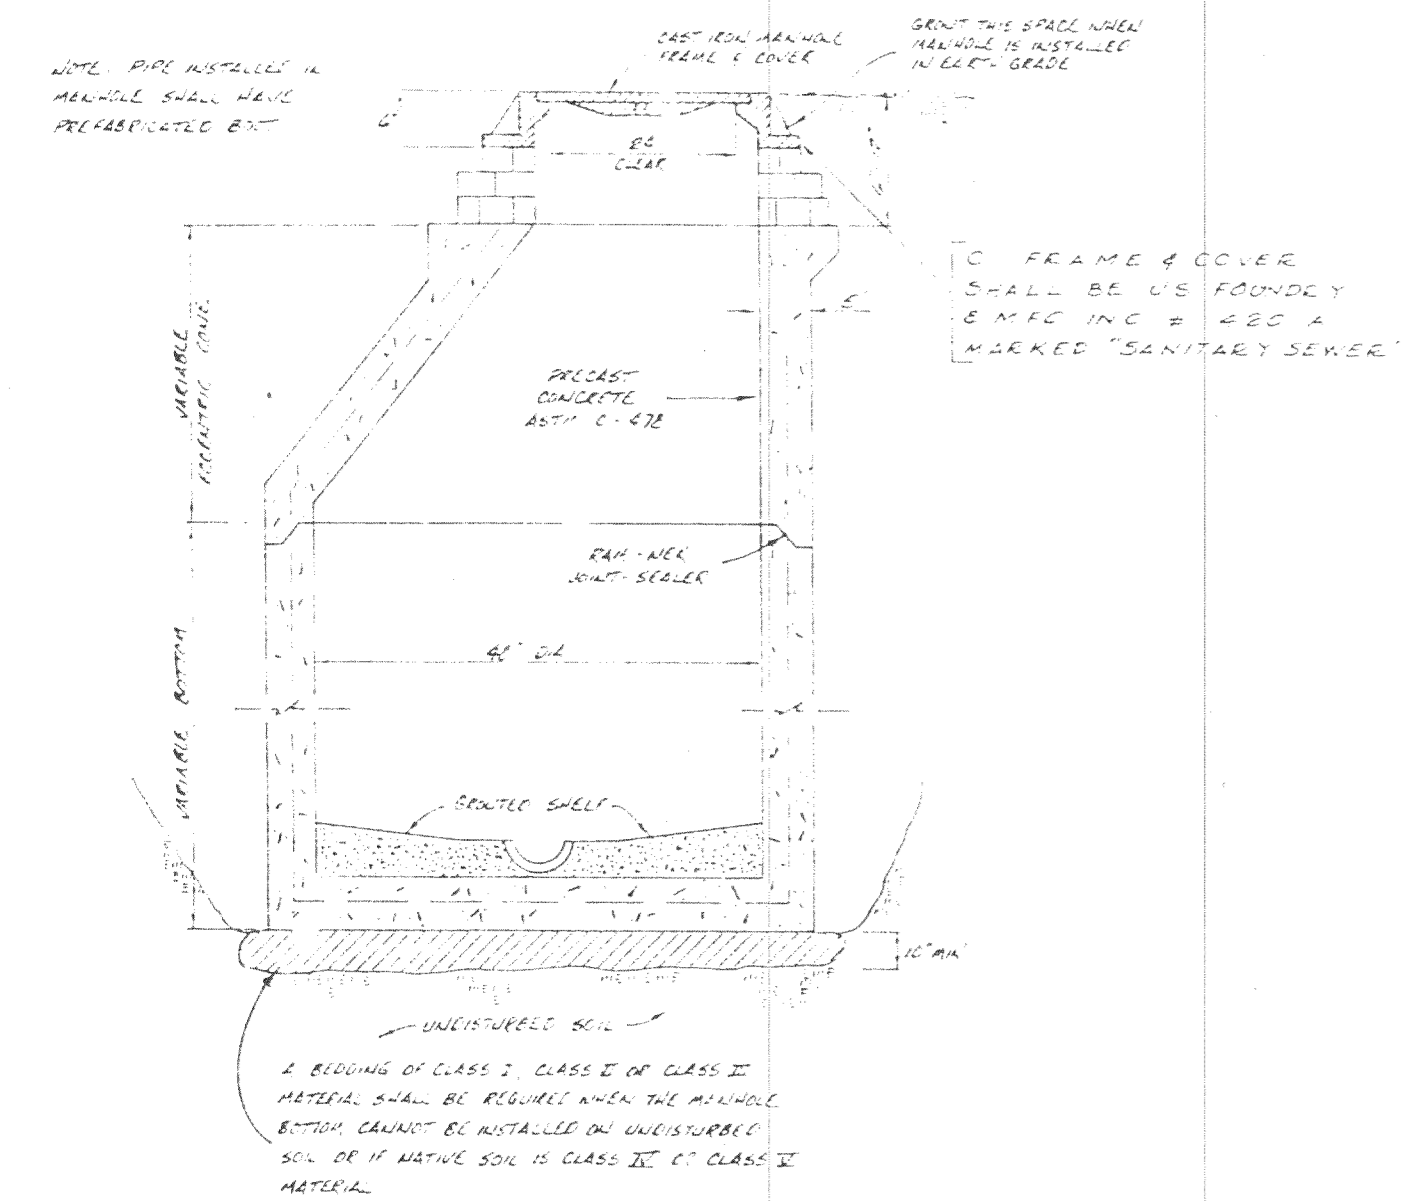 NOTE: PIPE INSTALLED IN
MANHOLE SHALL HAVE
PREFABRICATED
CAST IRON MANHOLE
FRAME & COVER
GROUT THIS SPACE WHEN
MANHOLE IS INSTALLED
IN EARTH GRADE
6"
CLEAR
C FRAME & COVER
SHALL BE US FOUNDRY
& MFG INC # 420 A
MARKED "SANITARY SEWER"
5"
VARIABLE
ECCENTRIC CONE
PRECAST
CONCRETE
ASTM C-478
RAM-NEK
JOINT-SEALER
48" DIA
VARIABLE BOTTOM
GROUTED SHELF
10" MIN
UNDISTURBED SOIL
A BEDDING OF CLASS I, CLASS II OR CLASS III
MATERIAL SHALL BE REQUIRED WHEN THE MANHOLE
BOTTOM CANNOT BE INSTALLED ON UNDISTURBED
SOIL OR IF NATIVE SOIL IS CLASS IV OR CLASS V
MATERIAL